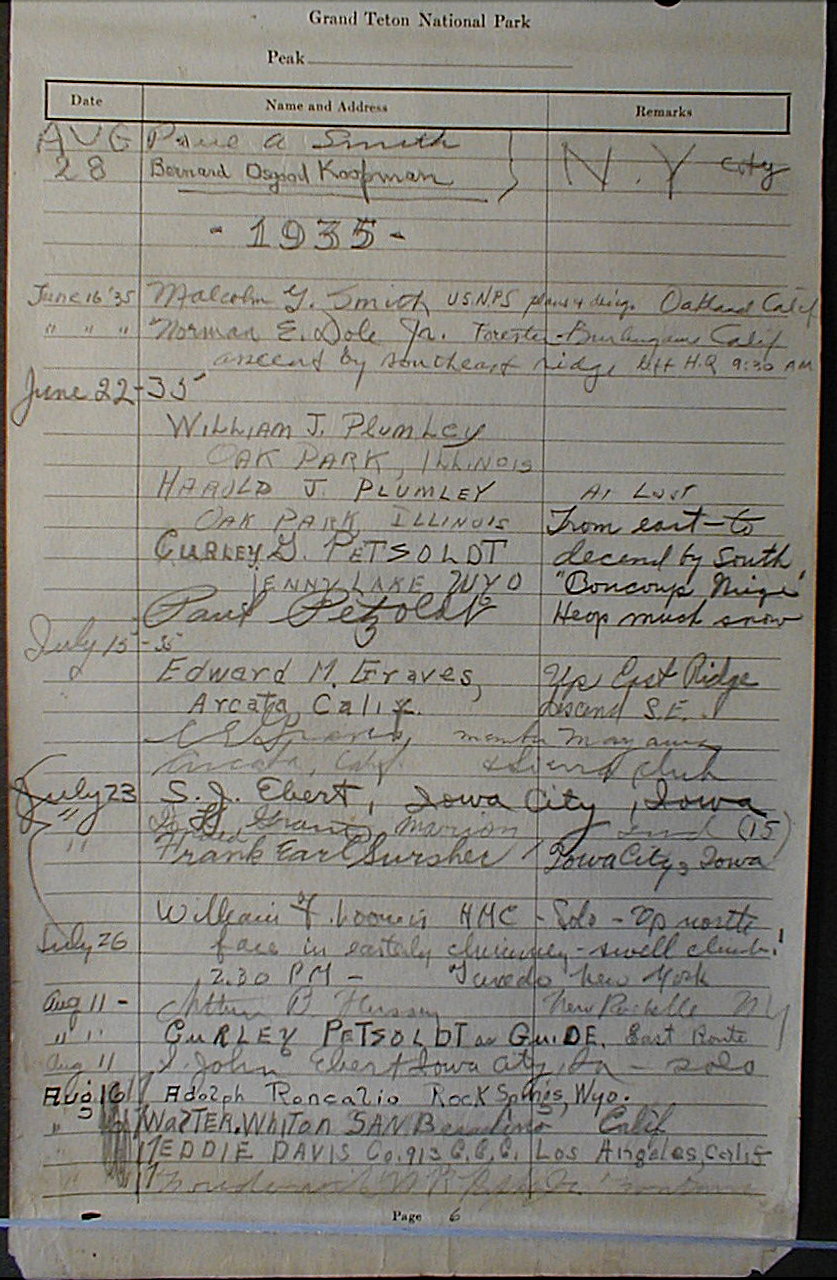 Grand Teton National Park
Peak
Date Name and Address Remarks
AUG Paul A Smith
28 Bernard Osgood Koopman N.Y City
- 1935 -
June 16 '35 Malcolm G. Smith USNPS Oakland Calif
" " " Norman E. Dole Jr. Forester - Burlingame Calif
ascent by southeast ridge left H.Q 9:30 AM
June 22-35
WILLIAM J. PLUMLEY
OAK PARK, ILLINOIS
HAROLD J. PLUMLEY At Last
OAK PARK ILLINOIS From east - to
CURLEY G. PETSOLDT decend by South
JENNY LAKE WYO
Paul Petzoldt Heap much snow
July 15 - 35
Edward M. Graves, Up East Ridge
Arcata, Calif. descend S.E.
C E Graves, member
Arcata, Calif. & Sierra Club
July 23 S. J. Ebert, Iowa City, Iowa
" Grant, Marion Ind (15)
" Frank Earl Iowa City, Iowa
William F. Loomis HMC - Solo - Up north
July 26 face in easterly chimney - swell climb!
2.30 PM - Tuxedo New York
Aug 11 - Arthur B New Rochelle NY
" " CURLEY PETSOLDT as GUIDE. East Route
Aug 11 S. John Ebert Iowa City, Ia - solo
Aug 16 Adolph Roncalio Rock Springs, Wyo.
" WALTER WHITON SAN Calif
" TEDDIE DAVIS Co. 913 C.C.C. Los Angeles, Calif
Page 6